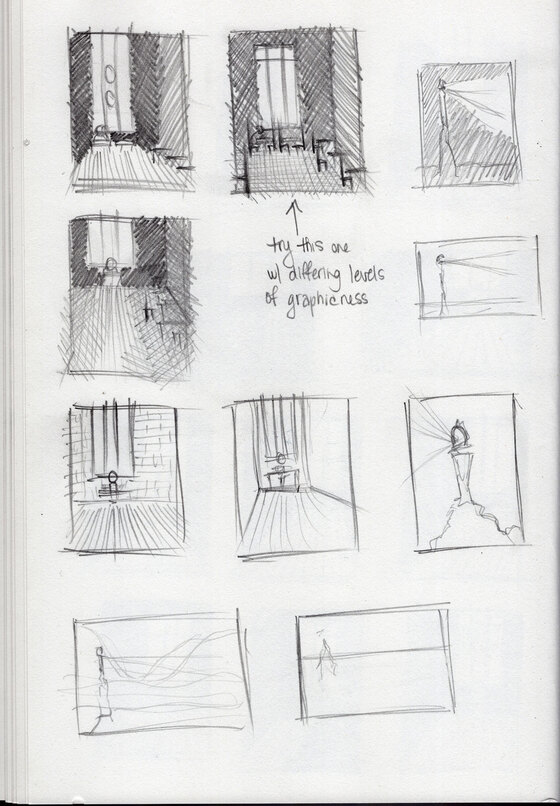 try this one
w/ differing levels
of graphicness